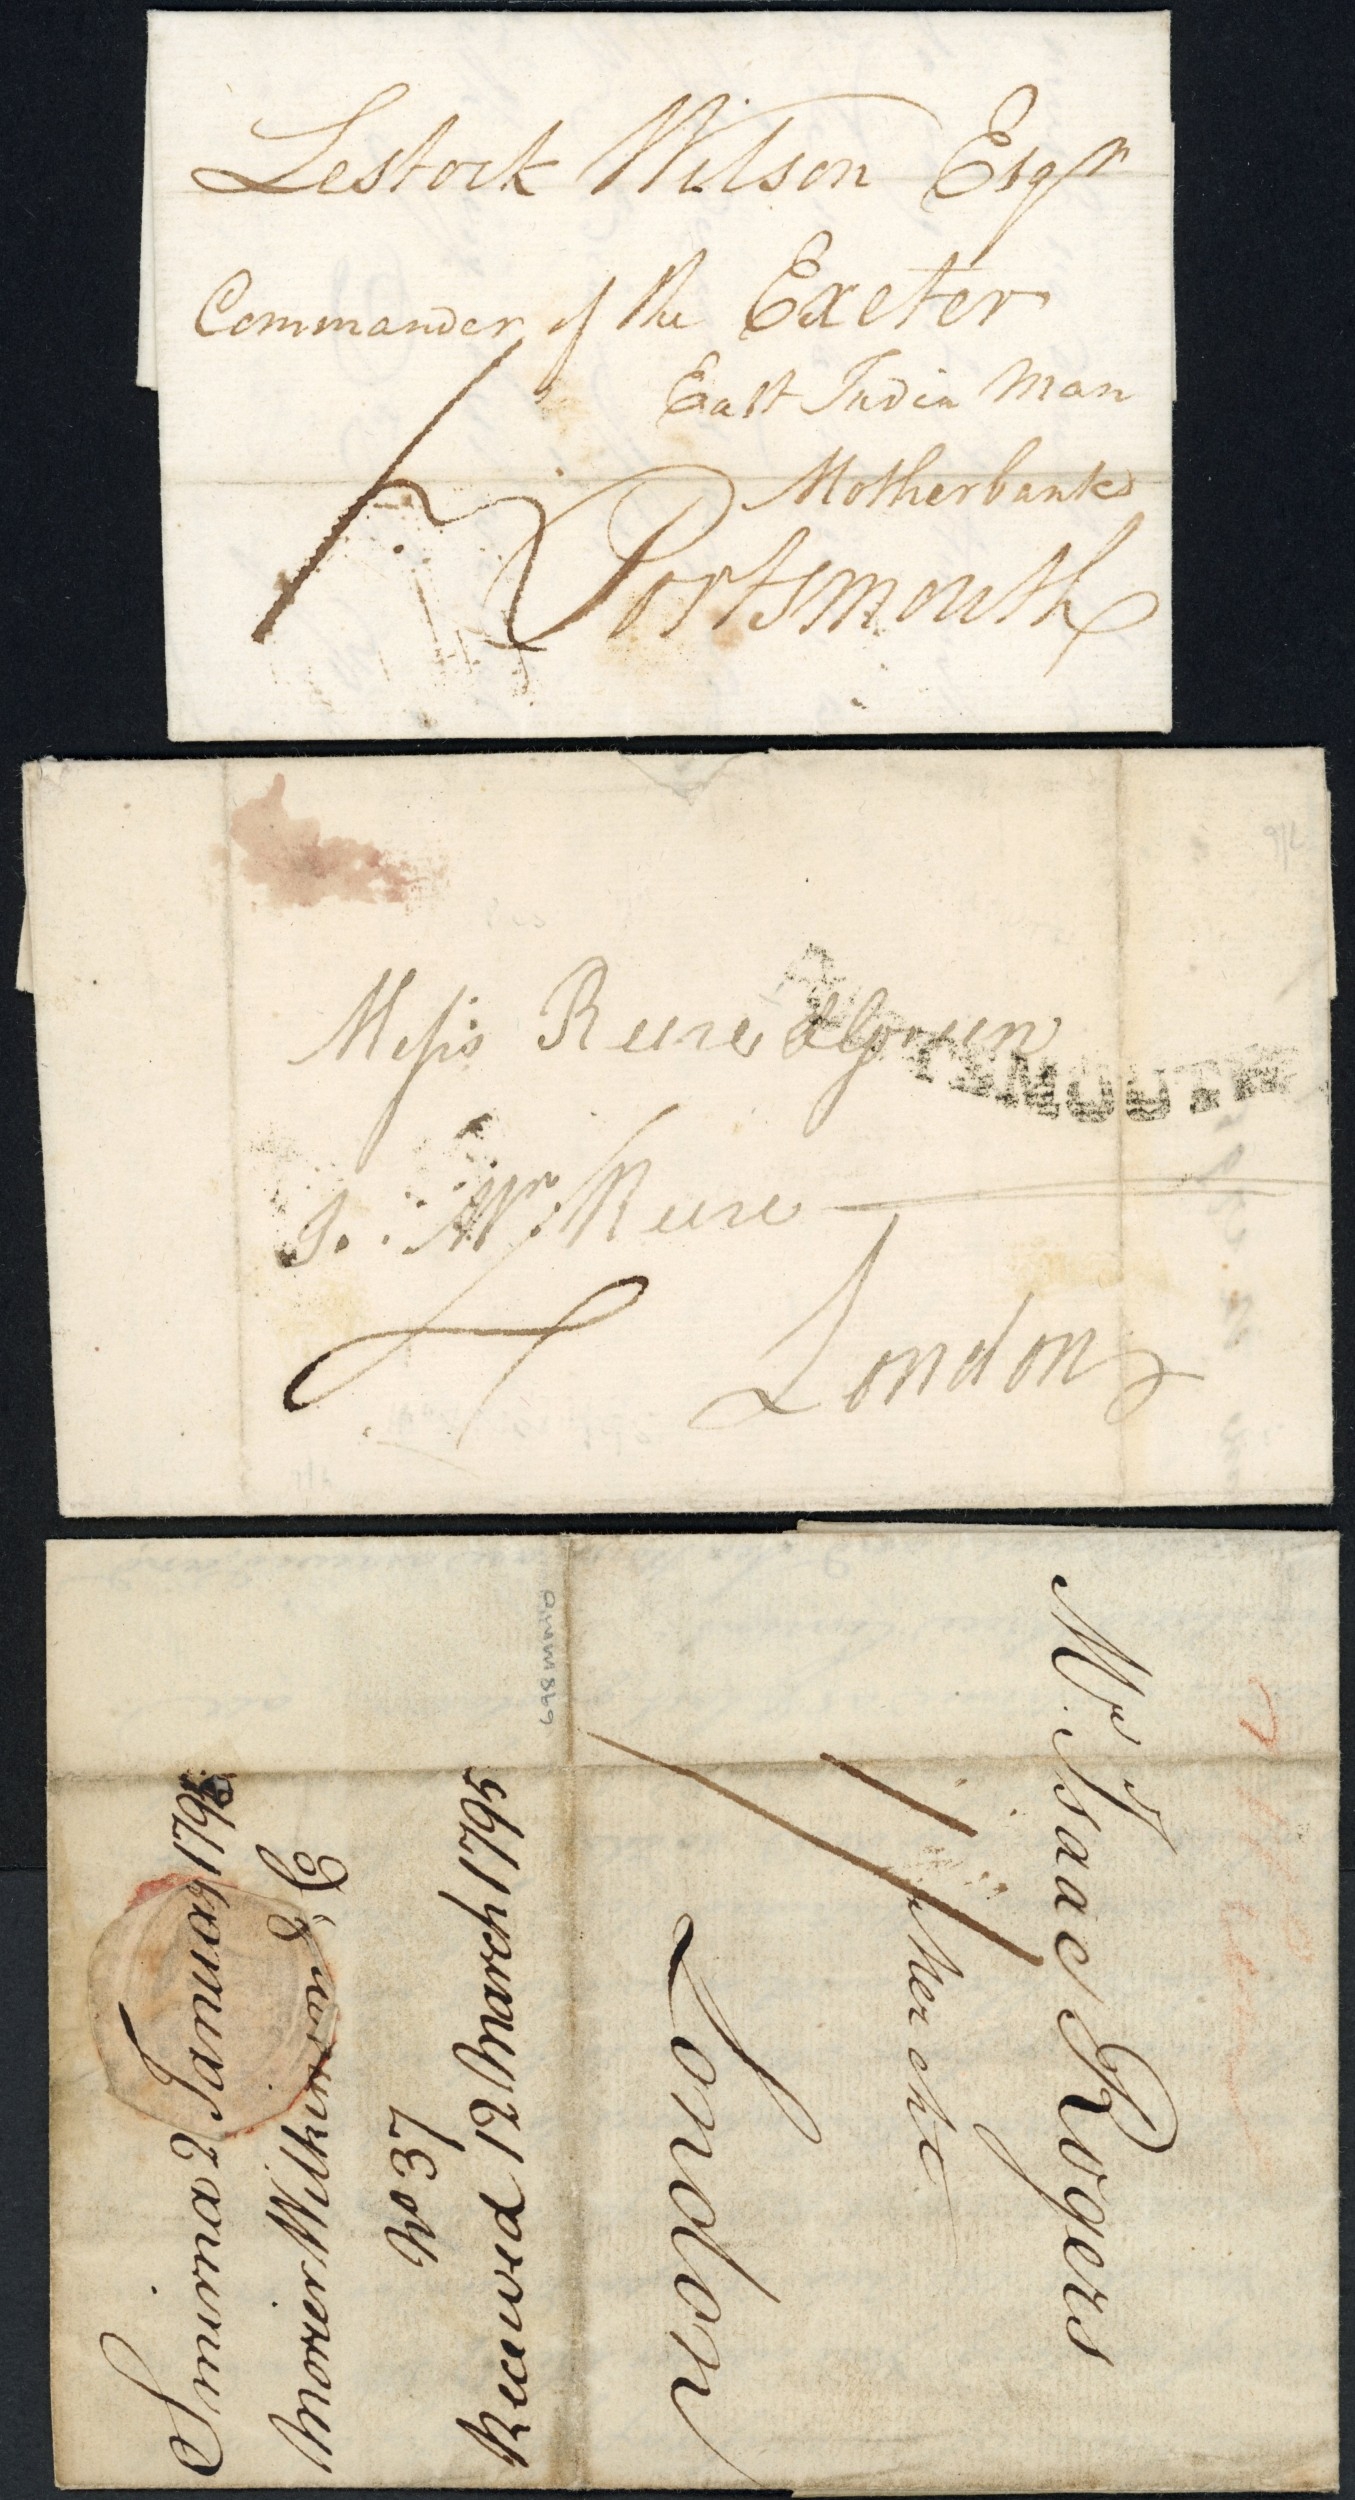 Lestock Wilson Esqr
Commander of the Exeter
East India Man
Motherbank
Portsmouth
Mess Reeve & Green
Mr Reeve
London
Mr Isaac Rogers
Mercht
London
Smirna 2 January 1795
Morier Wilkinson & Co
No 37
Received 12 March 1795